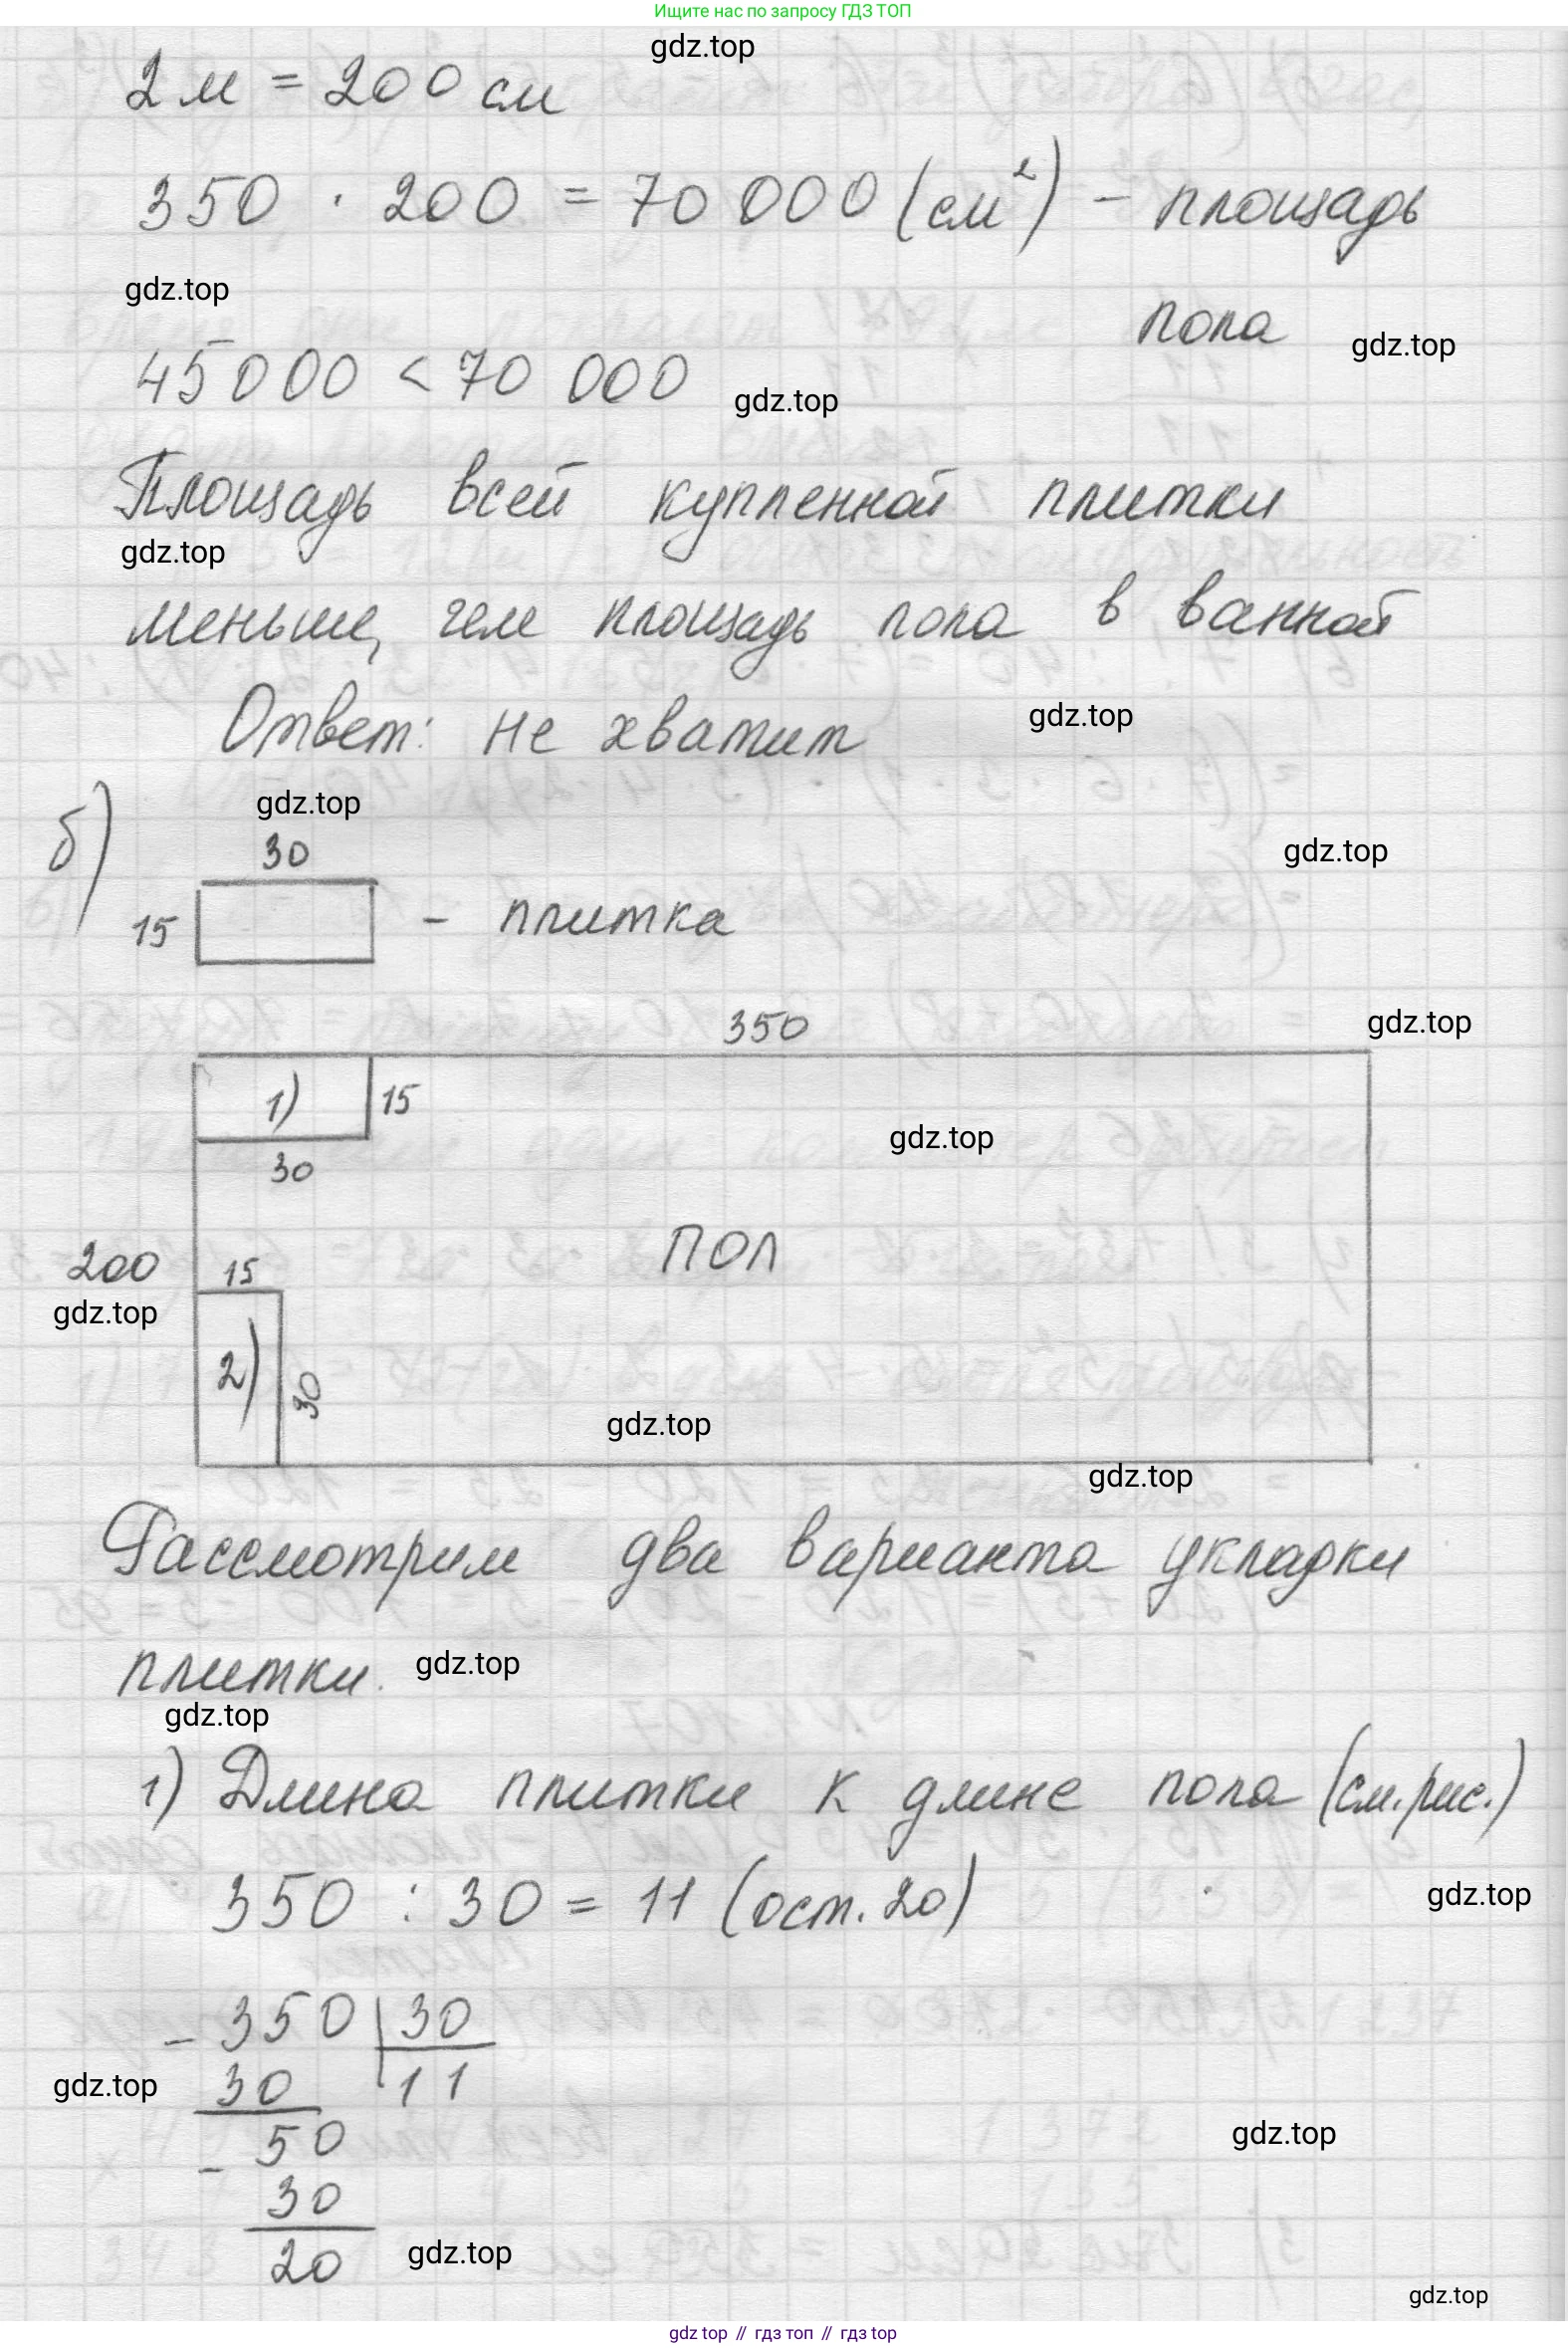 Ищите нас по запросу ГДЗ ТОП
gdz.top
2 м = 200 см
350 · 200 = 70 000 (см²) – площадь
gdz.top
пола
gdz.top
45000 < 70 000
gdz.top
Площадь всей купленной плитки
gdz.top
меньше, чем площадь пола в ванной
Ответ: не хватит
gdz.top
б)
gdz.top
30
gdz.top
15
– плитка
350
gdz.top
1)
15
gdz.top
30
ПОЛ
200
15
gdz.top
2)
30
gdz.top
gdz.top
Рассмотрим два варианта укладки
плитки.
gdz.top
gdz.top
1) Длина плитки к длине пола (см. рис.)
350 : 30 = 11 (ост. 20)
gdz.top
– 350 30
30 11
gdz.top
– 50
gdz.top
30
20
gdz.top
gdz.top
gdz top // гдз топ // гдз top